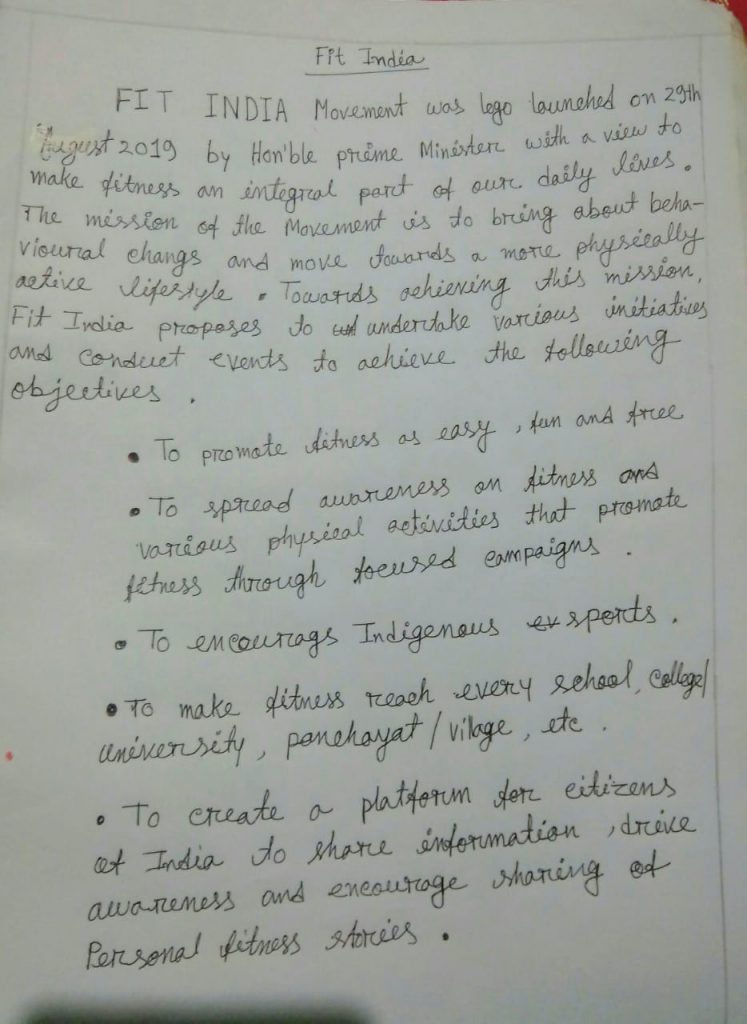 Fit India
FIT INDIA Movement was lego launched on 29th
August 2019 by Hon'ble prime Minister with a view to
make fitness an integral part of our daily lives.
The mission of the Movement is to bring about beha-
vioural changs and move towards a more physically
active lifestyle. Towards achieving this mission,
Fit India proposes to undertake various initiatives
and conduct events to achieve the following
objectives.
• To promote fitness as easy, fun and free
• To spread awareness on fitness and
various physical activities that promote
fitness through focused campaigns.
• To encourags Indigenous sports.
• To make fitness reach every school, college/
university, panchayat/village, etc.
• To create a platform for citizens
of India to share information, drive
awareness and encourage sharing of
Personal fitness stories.